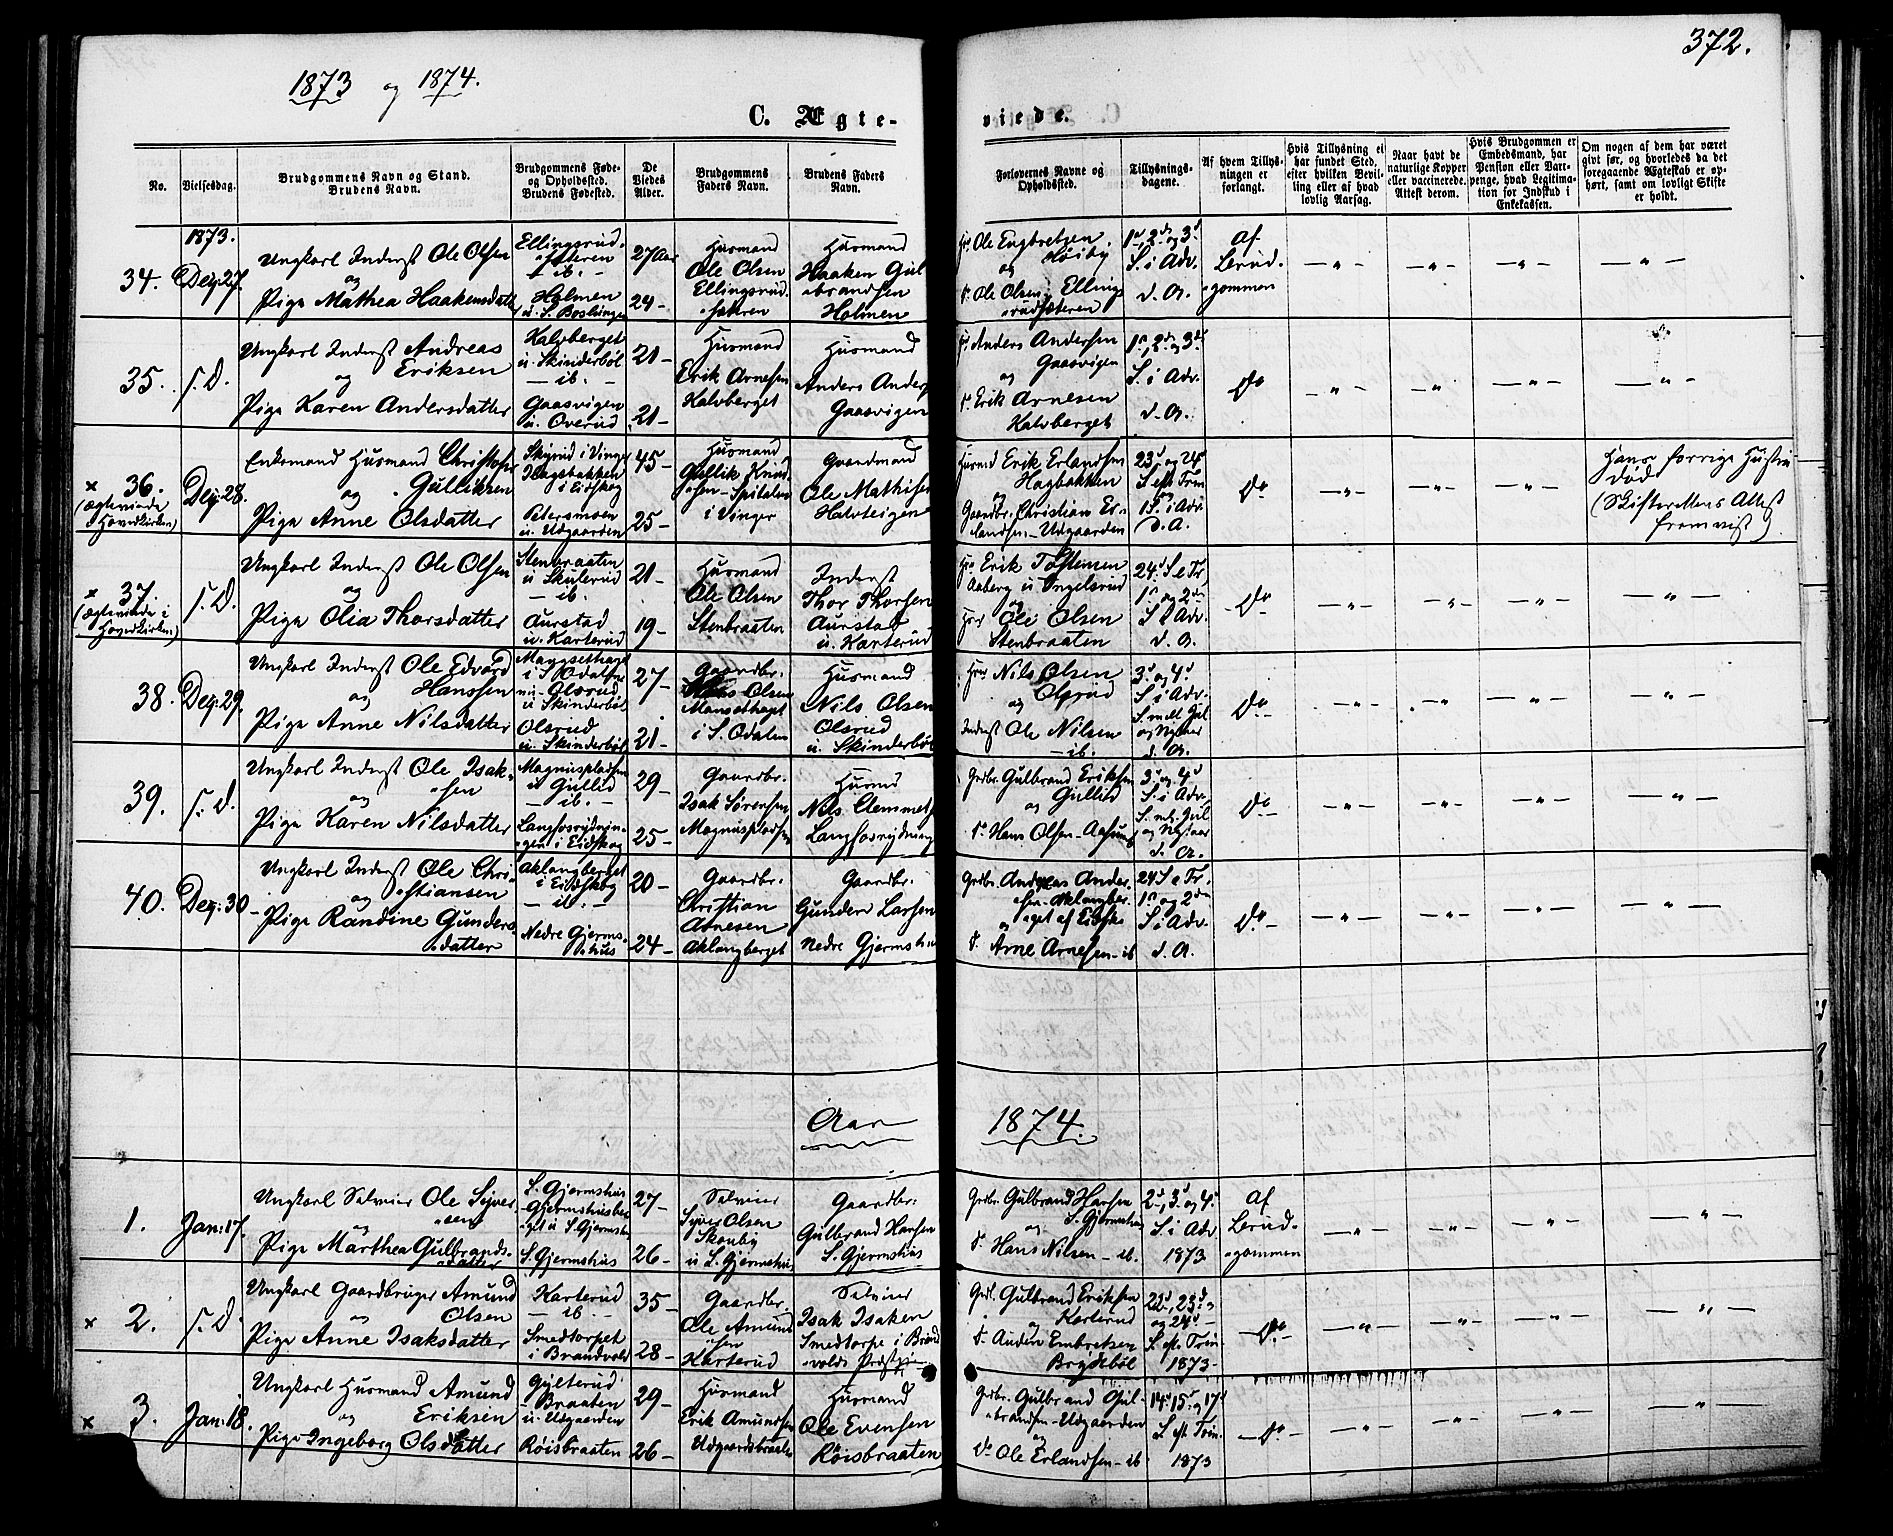 372.
1873 og 1874.
C. Ægte-
viede.
No.
Vielsesdag.
Brudgommens Navn og Stand.
Brudens Navn.
Brudgommens Føde-
og Opholdssted.
Brudens Fødested.
De
Viedes
Alder.
Brudgommens
Faders Navn.
Brudens Faders
Navn.
Forlovernes Navne og
Opholdssted.
Tillysnings-
dagene.
Af hvem Tillys-
ningen er
forlangt.
Hvis Tillysning ei
har fundet Sted,
efter hvilken Bevil-
ling eller af hvad
lovlig Aarsag.
Naar havt de
naturlige Kopper
eller vaccinerede.
Attest derom.
Hvis Brudgommen er
Embedsmand, har
Pension eller Vart-
penge, hvad Legitima-
tion for Indskud i
Enkekassen.
Om nogen af dem har været
givt før, og hvorledes da det
foregaaende Ægteskab er op-
hørt, samt om lovligt Skifte
er holdt.
1873.
34.
Dez: 27.
Ungkarl Inderst Ole Olsen
og
Pige Mathea Haakensdatter
Ellingsrud-
sæteren
- ib. -
Holmen
27 Aar
24 -
Husmand
Ole Olsen
Ellingsrud-
sæteren
Husmand
Haaken Gul
brandsen
Holmen
Ole Engbretsen
Høiby
og
Ole Olsen, Ellings
rudsæteren
1ste, 2den og 3d
S. i Adv.
d. A.
af
Brud-
gommen
35.
s. D.
Ungkarl Inderst Andreas
Eriksen
og
Pige Karen Andersdatter
Kalvberget
u. Skinderböl
- ib. -
Gaasvigen
u. Overud
21 -
21 -
Husmand
Erik Arnesen
Kalvberget
Husmand
Anders Anders
Gaasvigen
Anders Andersen
Gaasvigen
og
Erik Arnesen
Kalvberget
S. i Adv.
d. A.
Do
× 36.
(ægteviede i
Hovedkirken)
Dez: 28.
Enkemand Husmand Christofer
Gulliksen
og
Pige Anne Olsdatter
Skyrud i Vinger
Hagbakken
i Eidskog
Petersmoen
u. Udgaarden
45 -
25 -
Husmand
Gullik Knud
sen - Spitalen
i Vinger
Gaardmand
Ole Mathisen
Halvteigen
Husmd Erik Erlandsen
Hagbakken
og
Gaardbr. Christian Er-
landsen - Udgaarden
23d og 24d
S. eft. Trin
og
1ste i Adv.
d. A.
Do
Hans forrige Hustru
död
(Skifterettens Attest
fremvist)
× 37.
(ægteviede i
Hovedkirken)
s. D.
Ungkarl Inderst Ole Olsen
og
Pige Olia Thorsdatter
Stenbraaten
u. Skulerud
- ib. -
Aurstad
u. Karterud
21 -
19 -
Husmand
Ole Olsen
Stenbraaten
Inderst
Thor Thorsen
Aurstad
u. Karterud
Erik Tostensen
Aaberg u. Ingelsrud
og
Ole Olsen
Stenbraaten
24d S. e Tr,
1ste og 2den
S. i Adv.
d. A.
Do
38.
Dez: 29.
Ungkarl Inderst Ole Edvard
Hanssen
og
Pige Anne Nilsdatter
i S. Odalen
u. Skinderböl
Olsrud
u. Skinderböl
27 -
21 -
Gaardbr.
Hans Olsen
i S. Odalen
Husmand
Nils Olsen
Olsrud
u. Skinderböl
Nils Olsen
og Olsrud
Inderst Ole Nilsen
- ib.
3d og 4d
S. i Adv.
S. mell. Jul
og Nytaar
d. A.
Do
39.
s. D.
Ungkarl Inderst Ole Isak-
sen
og
Pige Karen Nilsdatter
Magnuspladsen
u Gullid
- ib. -
i Eidskog
29 -
25 -
Gaardbr.
Isak Sørensen
Magnuspladsen
Husmd
Nils Clemmets
Grdbr. Gulbrand Eriksen
og Gullid
Hans Olsen - Aasum
3d og 4d
S. i Adv.
S. m. Jul
og Nytaar
d. A.
Do
40.
Dez: 30 -
Ungkarl Inderst Ole Chri-
stiansen
og
Pige Randine Gunders-
datter
Aklangberget
i Eidskog
- ib. -
Nedre Gjerms-
hus
20 -
24 -
Gaardbr.
Christian
Arnesen
Aklangberget
Gaardbr.
Gunder Larsen
Nedre Gjermshus
Grdbr. Andreas Ander-
sen - Aklangber-
get af Eidsk.
og
Arne Arnesen - ib
24 S e Tr.
1ste og 2den
S. i Adv.
d. A.
Do
Aar
1874.
1.
Jan: 17.
Ungkarl Selveier Ole Syver
sen
og
Pige Marthea Gulbrands-
datter
S. Gjermshus
Gjermshusber-
get u. S. Gjermshus
S. Gjermshus
27 -
26 -
Selveier
Syver Olsen
u S. Gjermshus
Gaardbr.
Gulbrand Hansen
S. Gjermshus
Grdbr. Gulbrand Hansen
og S. Gjermshus
Hans Nilsen - ib.
2d, 3d og 4d
S. i Adv
1873
af
Brud-
gommen
× 2.
s. D.
Ungkarl Gaardbruger Amund
Olsen
og
Pige Anne Isaksdatter
Karterud
- ib. -
Smedtorpet
i Brandvold
35 -
28 -
Gaardbr.
Ole Amund
sen
Karterud
Selveier
Isak Isaksen
Smedtorpet i Brand
volds Præstgj.
Grdbr. Gulbrand Eriksen
og Karterud
Embretsen
22d, 23d
og 24d
S. eft. Trin.
1873 -
Do
× 3.
Jan: 18.
Ungkarl Husmand Amund
Eriksen
og
Pige Ingeborg Olsdatter
Braaten
u. Udgaarden
Røisbraaten
29 -
26 -
Husmand
Erik Amundsen
Udgaardsbraaten
Husmand
Ole Evensen
Røisbraaten
Grdbr. Gulbrand Gul-
brandsen - Udgaarden
og
Do Ole Erlandsen - ib
14d 15d og 17d
S. eft Trin.
1873
Do